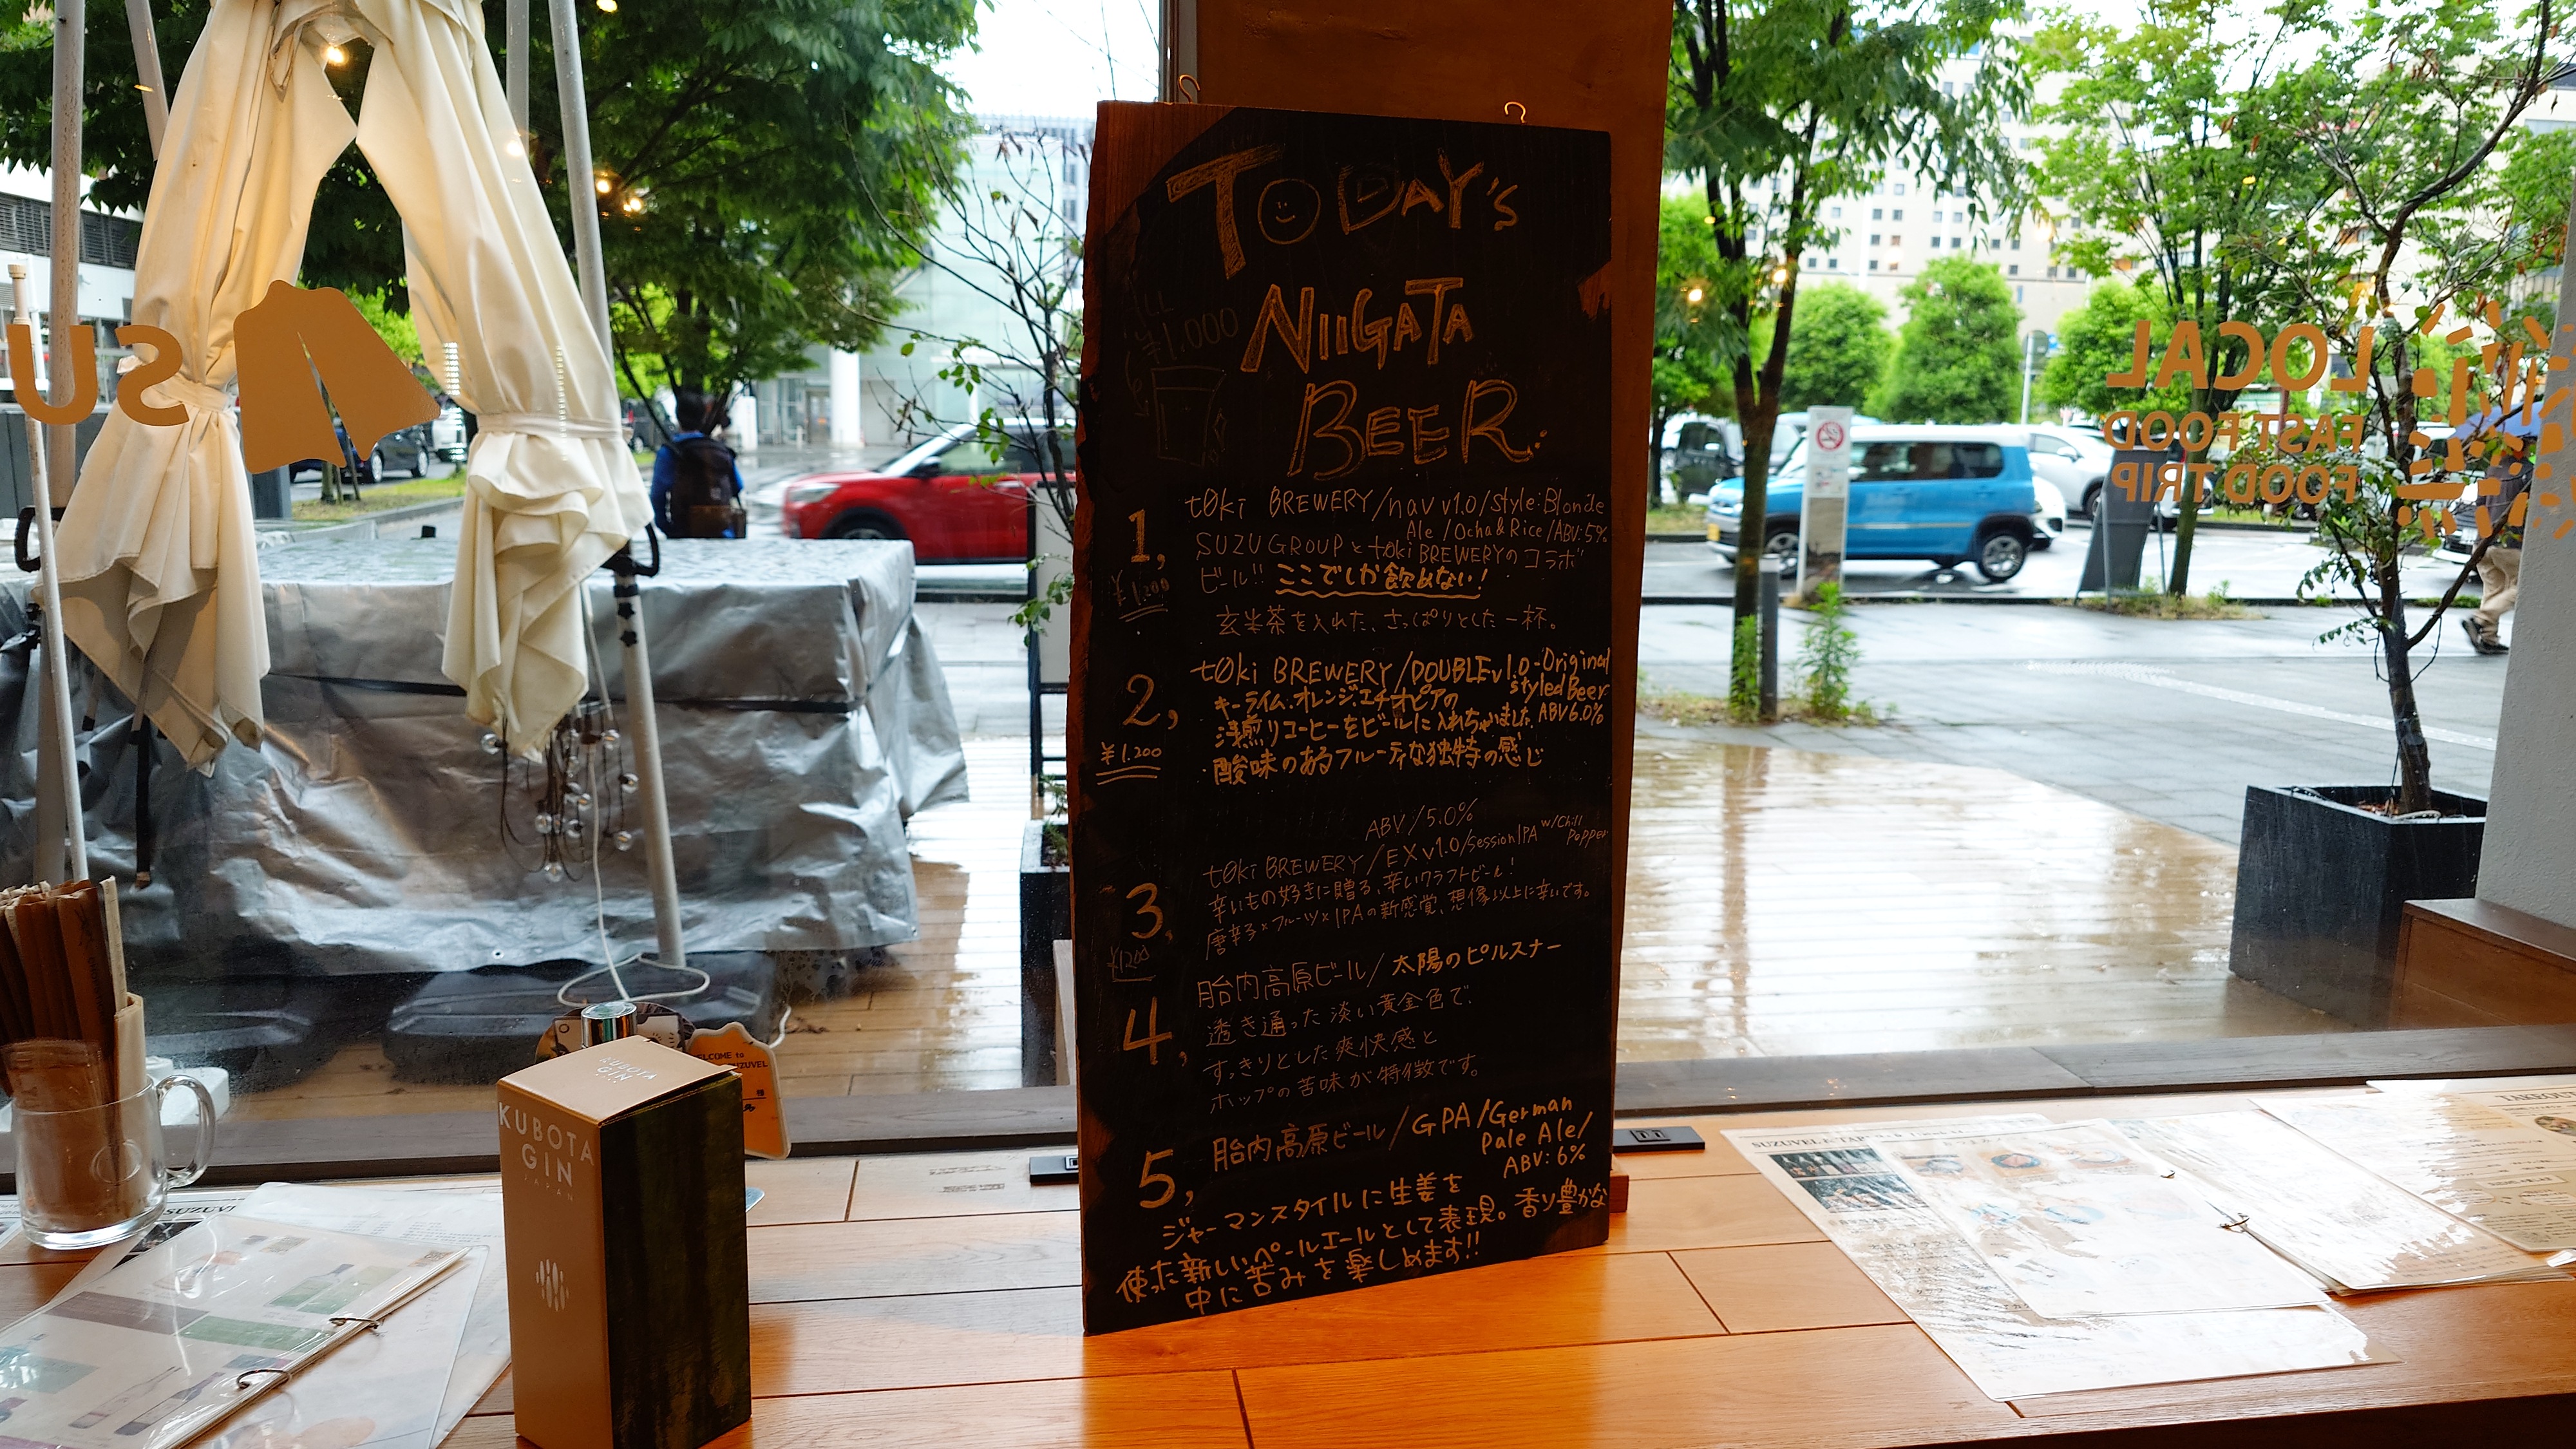 TODAY's
NIIGATA
BEER
ALL
¥1.000
1,
¥1.200
tOki BREWERY/nav v1.0/style:Blonde
Ale/Ocha&Rice/ABV:5%
SUZU GROUPとtOki BREWERYのコラボ
ビール!! ここでしか飲めない!
玄米茶を入れた、さっぱりとした一杯。
2,
¥1.200
tOki BREWERY/DOUBLE v1.0-Original
styled Beer
キーライム、オレンジ、エチオピアの
浅煎りコーヒーをビールに入れちゃいました。ABV6.0%
酸味のあるフルーティな独特の感じ
3,
¥1200
ABV/5.0%
tOki BREWERY/EX v1.0/Session IPA w/Chili
Pepper
辛いもの好きに贈る、辛いクラフトビール!
唐辛子×フルーツ×IPAの新感覚、想像以上に辛いです。
4,
胎内高原ビール/太陽のピルスナー
透き通った淡い黄金色で、
すっきりとした爽快感と
ホップの苦味が特徴です。
5,
胎内高原ビール/GPA/German
Pale Ale/
ABV:6%
ジャーマンスタイルに生姜を
使った新しいペールエールとして表現。香り豊かな
中に苦みを楽しめます!!
SU
LOCAL
FAST FOOD
FOOD TRIP
KUBOTA
GIN
KUBOTA
GIN
JAPAN
WELCOME to
SUZUVEL
様